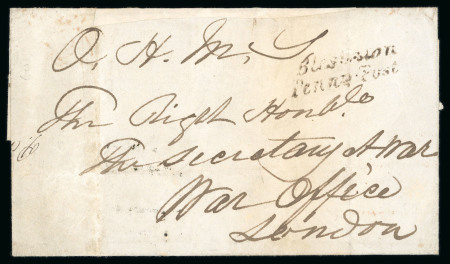 O. H. M. S
Penny Post
The Right Honble
The Secretary at War
War Office
London